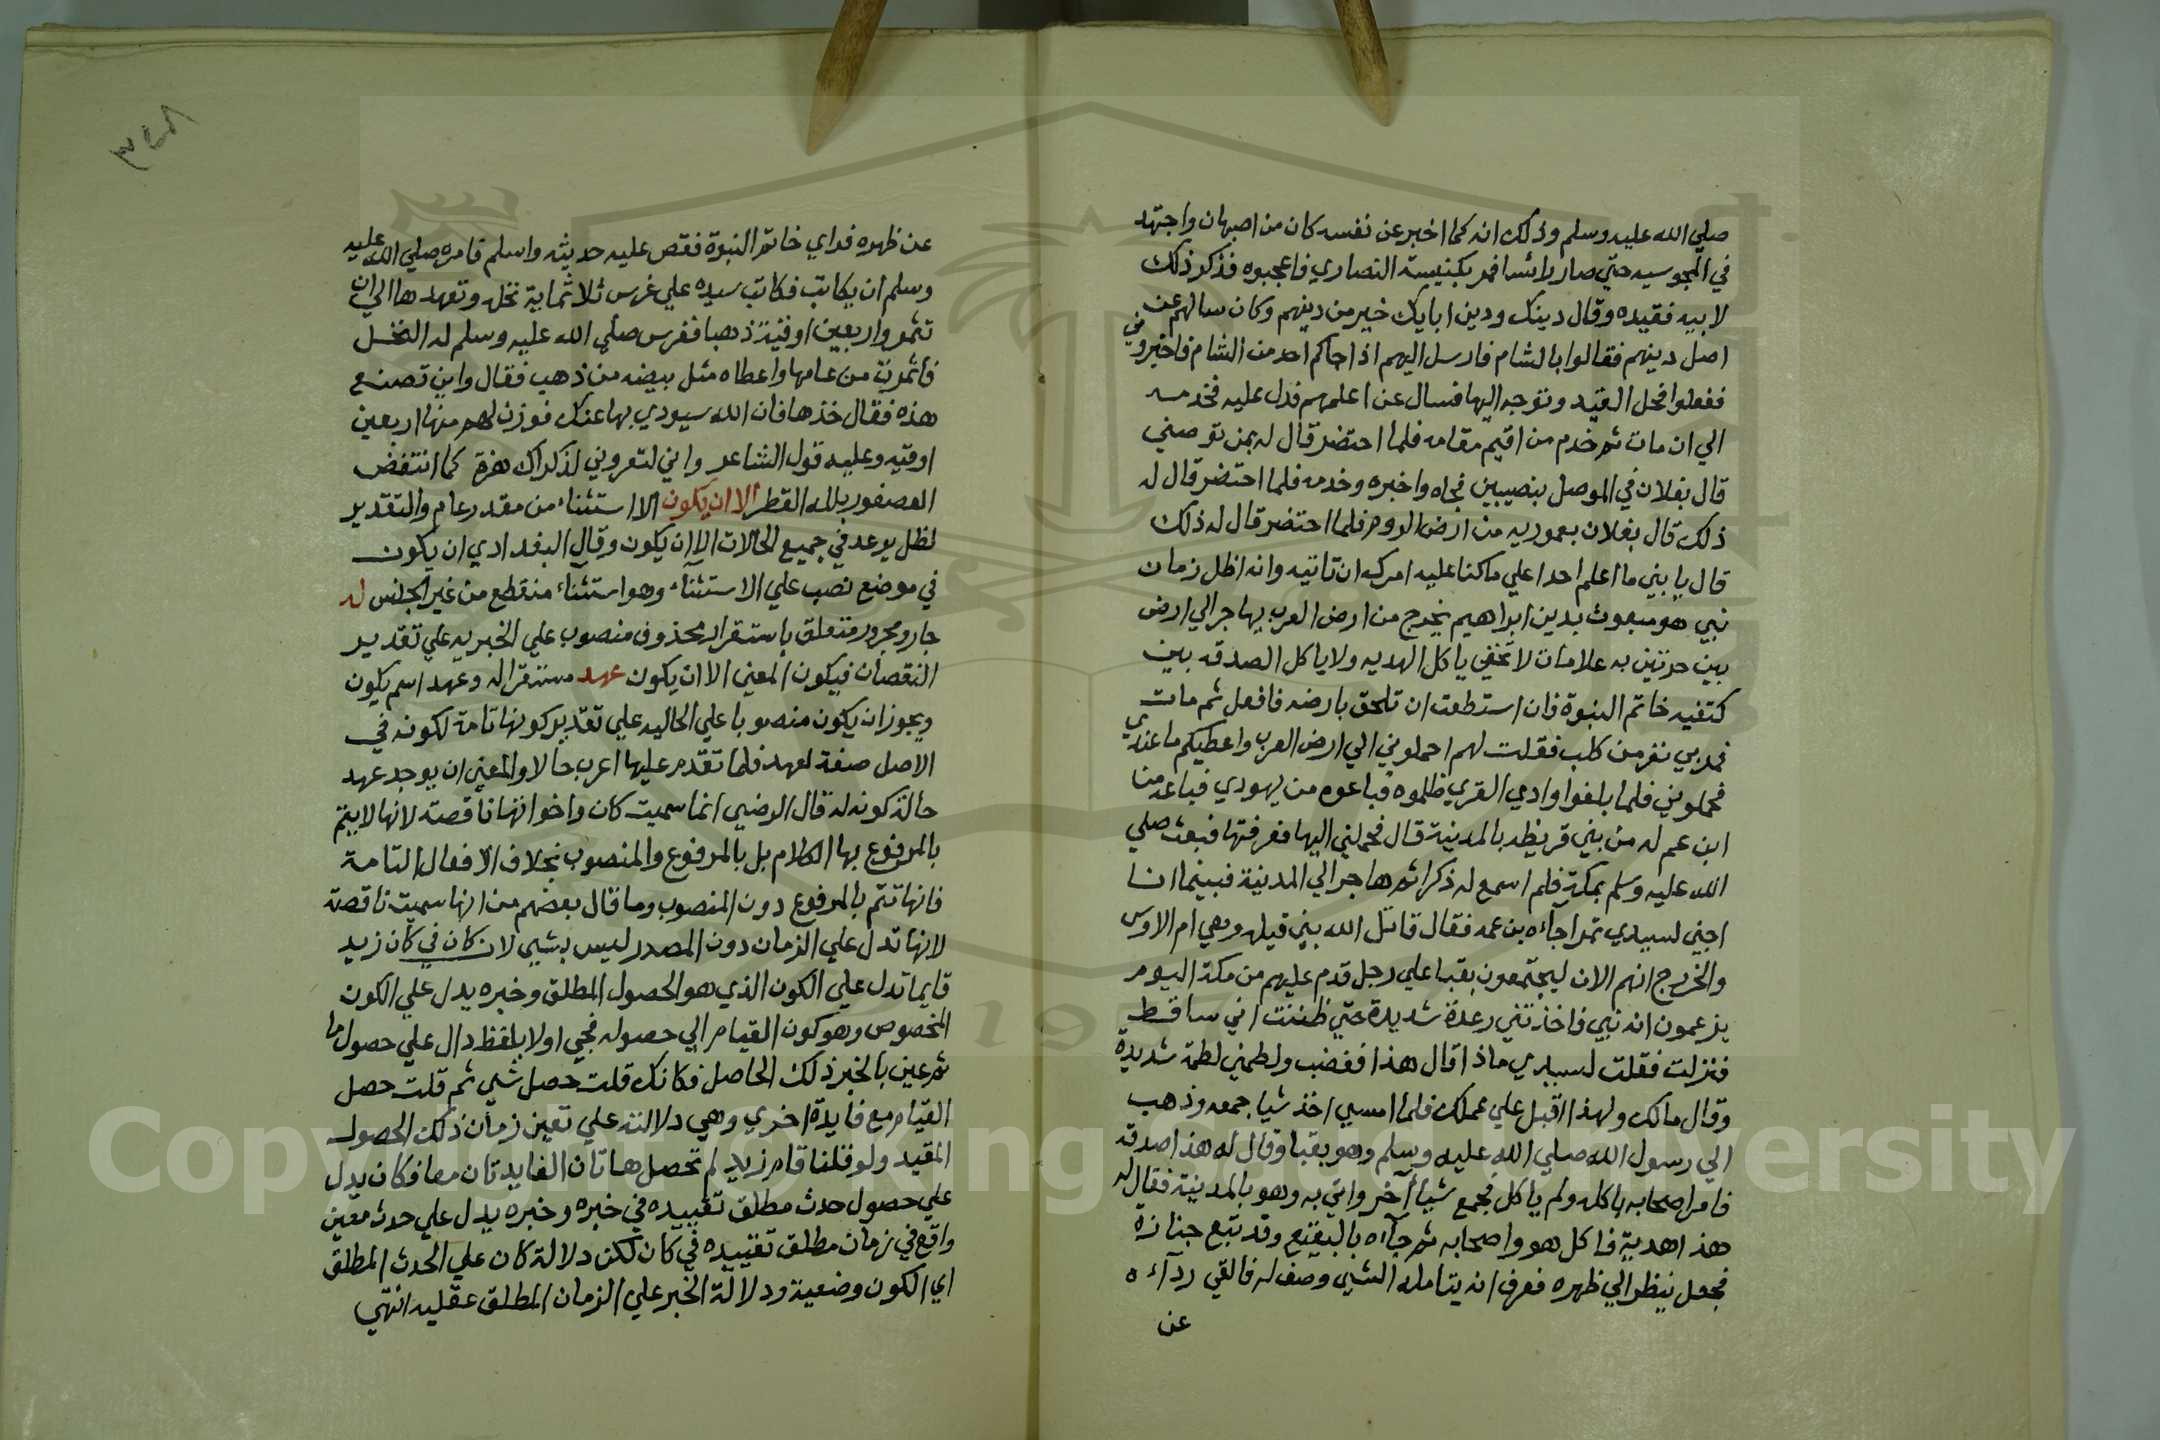 صلي الله عليه وسلم وذلك انه كما اخبر عن نفسه كان من اصبهان واجتهد
في المجوسيه حتي صار راسا فمر بكنيسة النصاري فاعجبوه فذكر ذلك
لابيه فقيده وقال دينك ودين ابايك خير من دينهم وكان سالهم عن
اصل دينهم فقالوا بالشام فارسل اليهم اذا جاكم احد من الشام فاخبروني
ففعلوا فحل القيد وتوجه اليها فسال عن اعلمهم فدل عليه فخدمه
الي ان مات ثم خدم من اقيم مقامه فلما احتضر قال له بمن توصيني
قال بفلان في الموصل بنصيبين فجاه واخبره وخدمه فلما احتضر قال له
ذلك قال بفلان بعموريه من ارض الروم فلما احتضر قال له ذلك
قال يا بني ما اعلم احدا علي ما كنا عليه امرك ان تاتيه وانه اظل زمان
نبي هو مبعوث بدين ابراهيم يخرج من ارض العرب يهاجر الي ارض
بين حرتين به علامات لا تخفي ياكل الهديه ولا ياكل الصدقه بين
كتفيه خاتم النبوة فان استطعت ان تلحق بارضه فافعل ثم مات
فمر بي نفر من كلب فقلت لهم احملوني الي ارض العرب واعطيكم ما عندي
فحملوني فلما بلغوا وادي القري ظلموه فباعوه من يهودي فباعه من
ابن عم له من بني قريظه بالمدينة قال فحملني اليها فعرفتها فبعث صلي
الله عليه وسلم بمكة فلم اسمع له ذكرا ثم هاجر الي المدينة فبينما انا
اجني لسيدي تمرا جآءه بن عمه فقال قاتل الله بني قيله وهي ام الاوس
والخزرج انهم الان ليجتمعون بقبا علي رجل قدم عليهم من مكة اليوم
يزعمون انه نبي فاخذتني رعدة شديدة حتي ظننت اني ساقط
فنزلت فقلت لسيدي ماذا قال هذا فغضب ولطمني لطمة شديدة
وقال مالك ولهذا اقبل علي عملك فلما امسي اخذ شيا جمعه وذهب
الي رسول الله صلي الله عليه وسلم وهو بقبا وقال له هذا صدقه
فامر اصحابه باكله ولم ياكل فجمع شيا آخر واتي به وهو بالمدينة فقال له
هذا هدية فاكل هو واصحابه ثم جآه بالبقيع وقد تبع جنازة
فجعل ينظر الي ظهره فعرف انه يتامله الشي وصف له فالقي ردآءه
عن
عن ظهره فراي خاتم النبوة فقص عليه حديثه واسلم فامره صلي الله عليه
وسلم ان يكاتب فكاتب سيده علي غرس ثلاثماية نخله وتعهدها الي ان
تثمر واربعين اوقية ذهبا فغرس صلي الله عليه وسلم له النخل
فاثمرت من عامها واعطاه مثل بيضه من ذهب فقال واين تصنع
هذه فقال خذها فان الله سيودي بها عنك فوزن لهم منها اربعين
اوقيه وعليه قول الشاعر واني لتعروني لذكراك هزة كما انتفض
العصفور بلله القطر الا ان يكون الا استثناء من مقدر عام والتقدير
لظل يوعد في جميع الحالات الا ان يكون وقال البغدادي ان يكون
في موضع نصب علي الاستثناء وهو استثناء منقطع من غير الجنس له
جار ومجرور متعلق باستقرار محذوف منصوب علي الخبريه علي تقدير
النقصان فيكون المعني الا ان يكون عهد مستقرا له وعهد اسم يكون
ويجوز ان يكون منصوبا علي الحاليه علي تقدير كونها تامة لكونه في
الاصل صفة لعهد فلما تقدم عليها اعرب حالا والمعني ان يوجد عهد
حالة كونه له قال الرضي انما سميت كان واخواتها ناقصة لانها لا يتم
بالمرفوع بها الكلام بل بالمرفوع والمنصوب بخلاف الافعال التامة
فانها تتم بالمرفوع دون المنصوب وما قال بعضهم من انها سميت ناقصة
لانها تدل علي الزمان دون المصدر ليس بشي لان كان في كان زيد
قايما تدل علي الكون الذي هو الحصول المطلق وخبره يدل علي الكون
المخصوص وهو كون القيام اي حصوله فجي اولا بلفظ دال علي حصول ما
ثم عين بالخبر ذلك الحاصل فكانك قلت حصل شي ثم قلت حصل
القيام مع فايدة اخري وهي دلالته علي تعين زمان ذلك الحصول
المقيد ولو قلنا قام زيد لم تحصل هاتان الفايدتان معا فكان يدل
علي حصول حدث مطلق تقييده في خبره وخبره يدل علي حدث معين
واقع في زمان مطلق تقييده في كان لكن دلالة كان علي الحدث المطلق
اي الكون وضعية ودلالة الخبر علي الزمان المطلق عقليه انتهي
Copyright © King Saud University